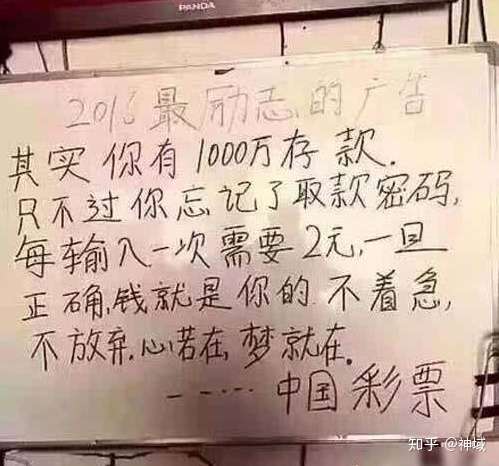 PANDA
2016最励志的广告
其实你有1000万存款.
只不过你忘记了取款密码,
每输入一次需要2元,一旦
正确,钱就是你的 不着急,
不放弃.心若在,梦就在.
-----中国彩票
知乎 @神域